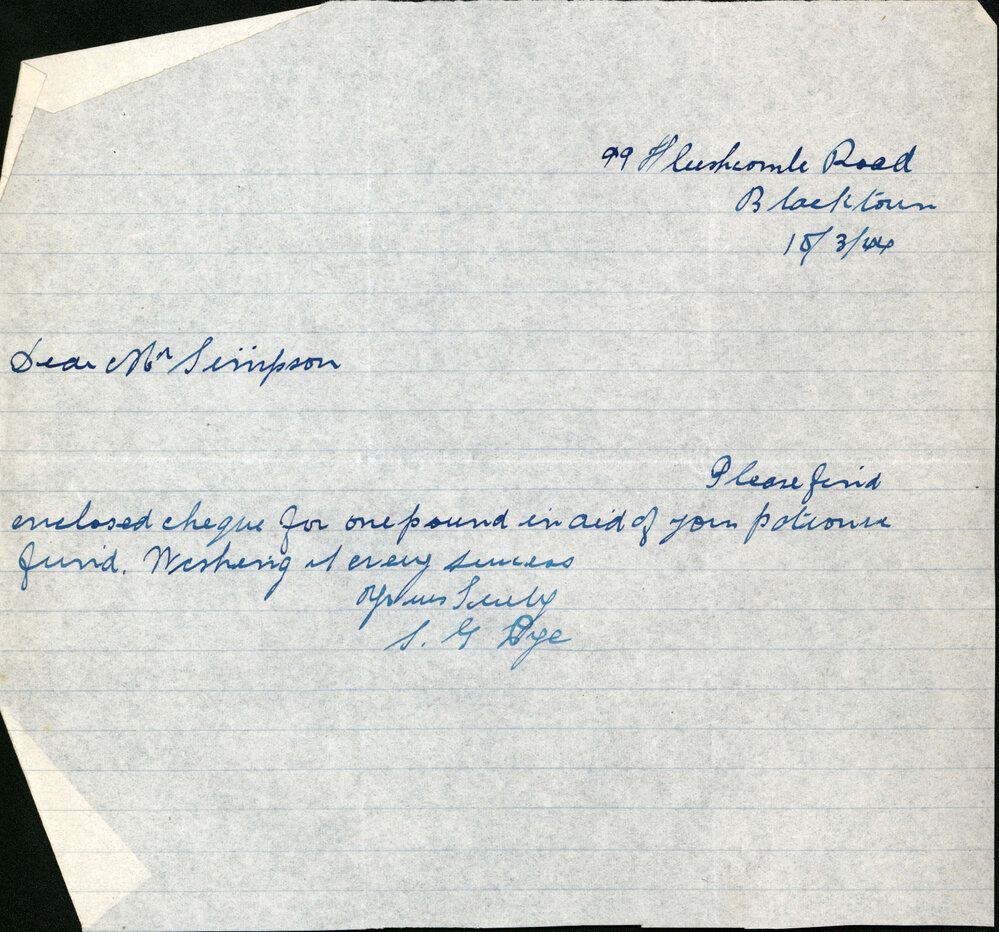 99 Flushcombe Road
Blacktown
18/3/44
Dear Mr Simpson
Please find
enclosed cheque for one pound in aid of your
fund. Wishing it every success
Yours Truly
S. G Pye